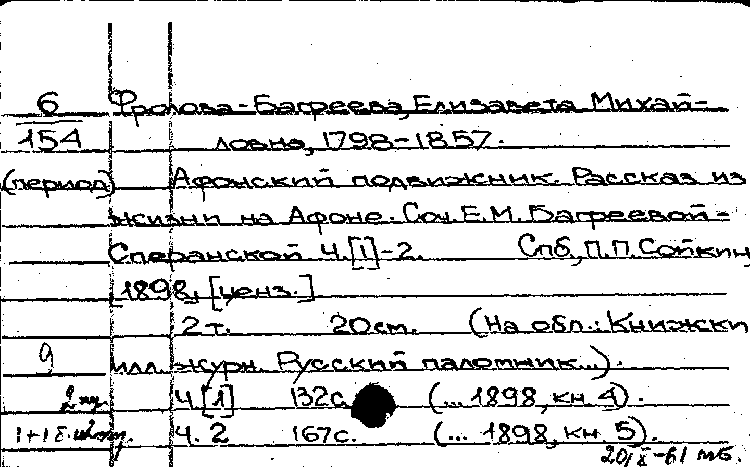 6 Фролова-Багреева, Елизавета Михай-
154 ловна, 1798-1857.
(период) Афонский подвижник. Рассказ из
жизни на Афоне. Соч. Е.М. Багреевой-
Сперанской Ч.[1]-2. Спб, П.П. Сойкин,
1898, [ценз.]
2 т. 20 см. (На обл.: Книжки
9 илл. журн. Русский паломник...).
Ч.[1] 132с. (... 1898, кн. 4).
Ч. 2 167с. (... 1898, кн. 5).